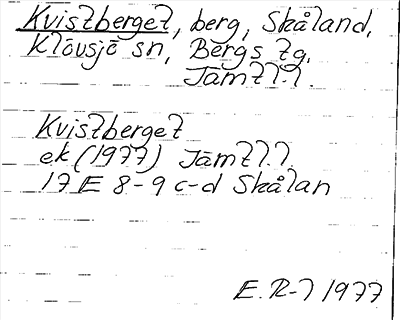 Kvistberget, berg, Skåland,
Klövsjö sn, Bergs tg.
Jämtl.l.
Kvistberget
ek (1977) Jämtl.l.
17 E 8-9 c-d Skålan
E. R-l 1977